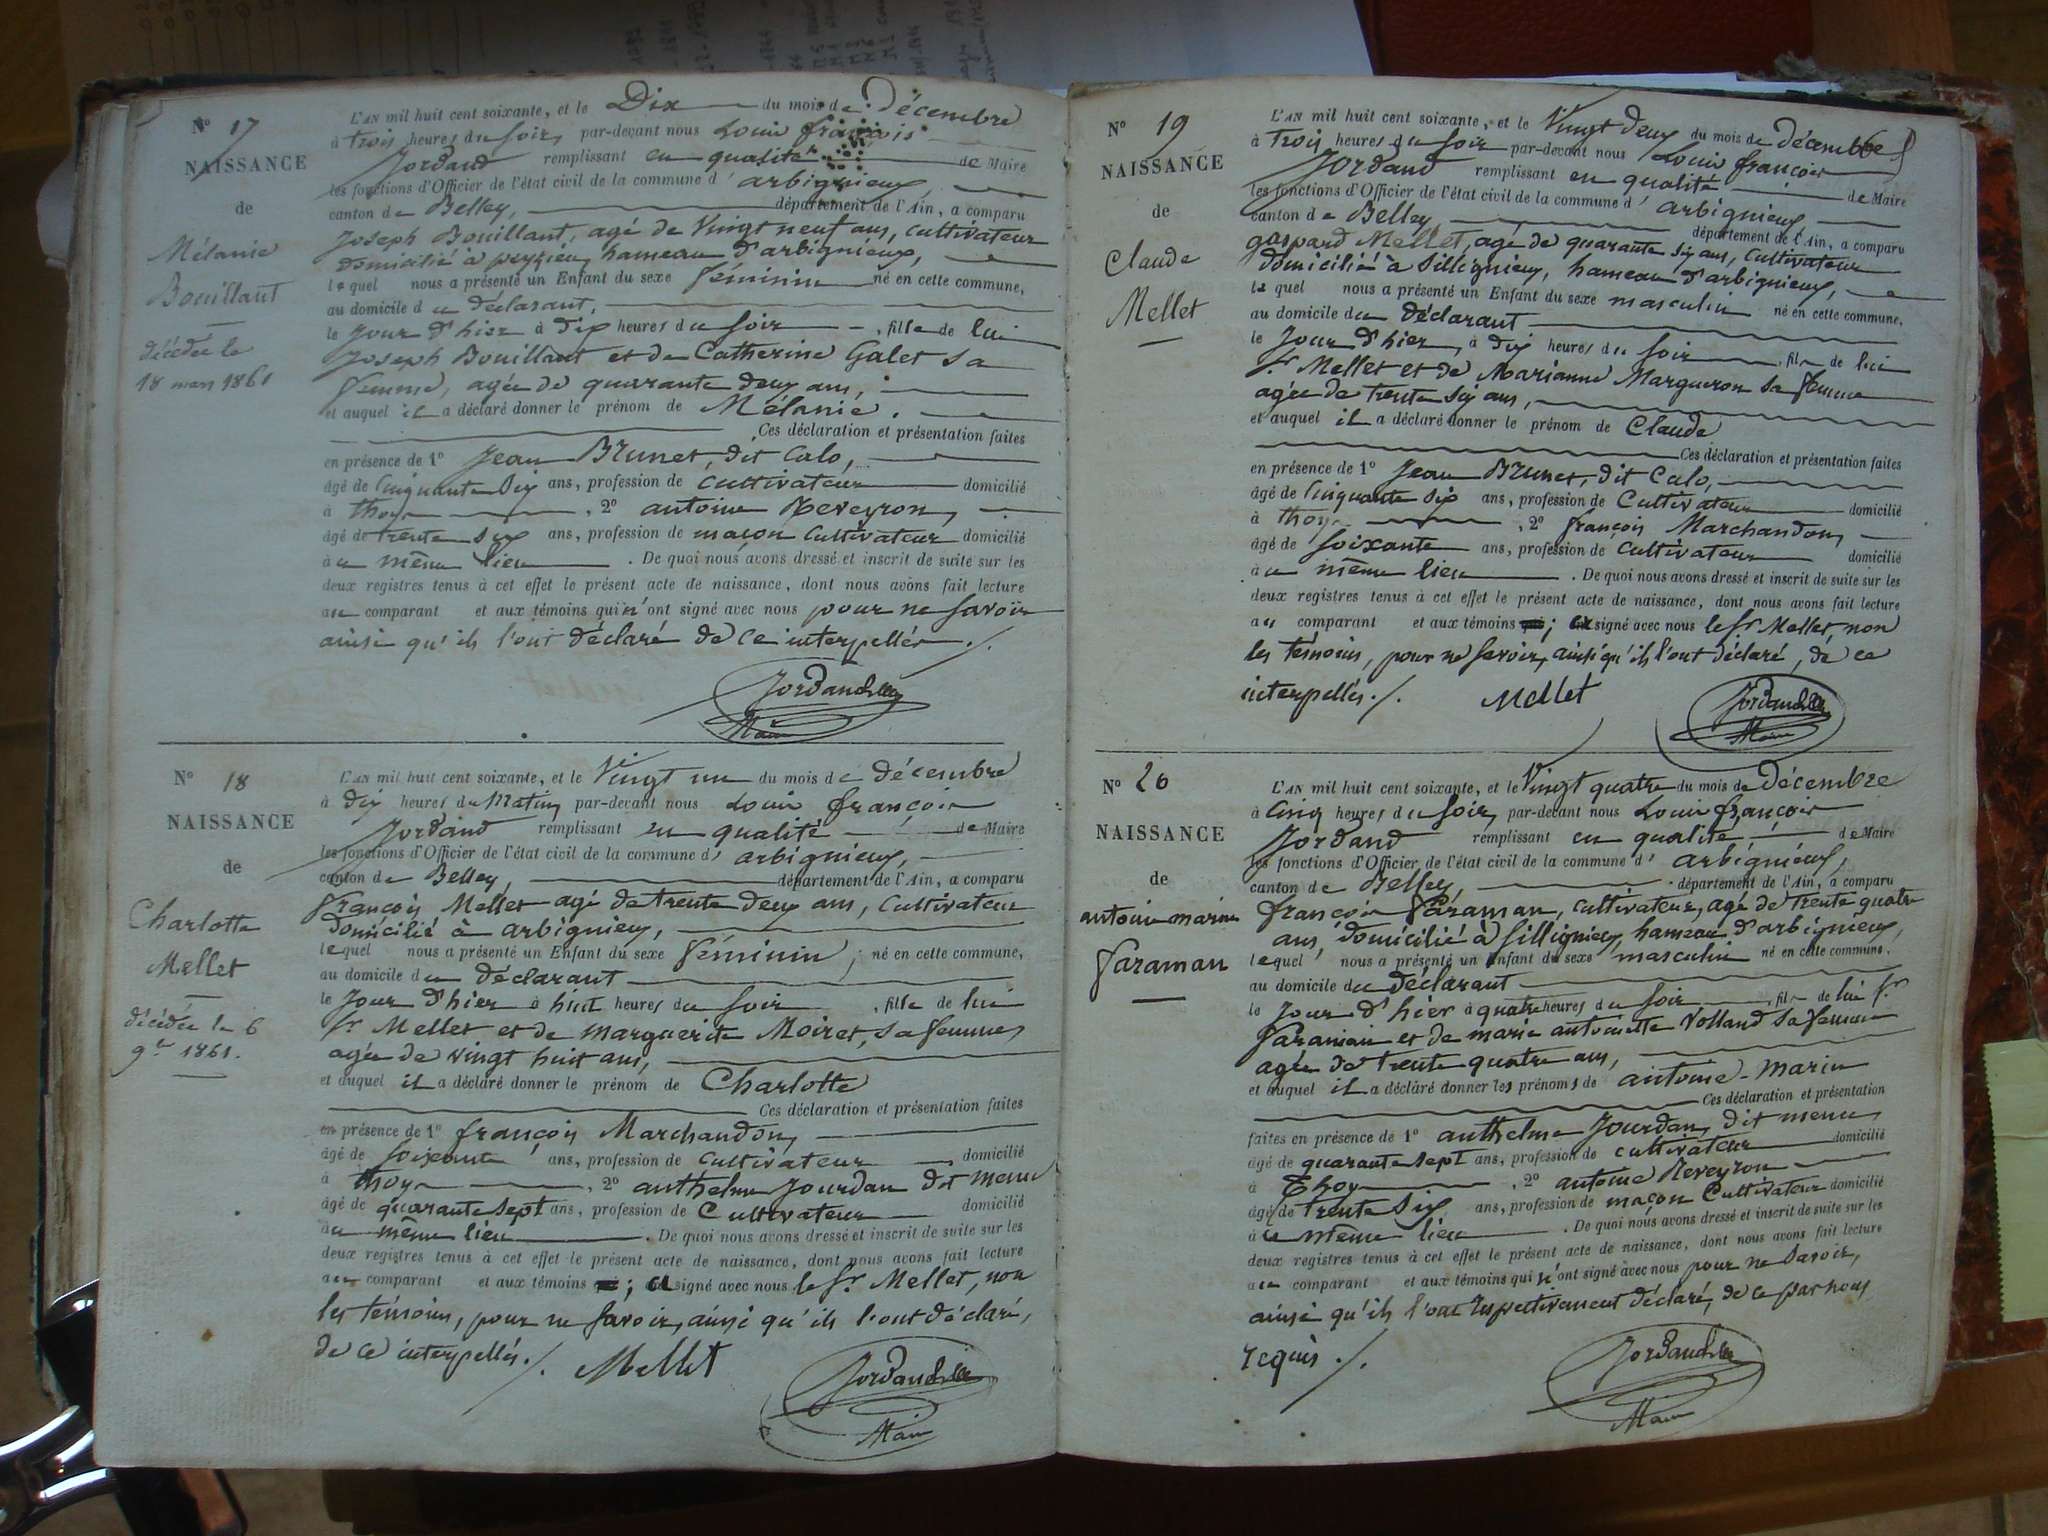 N° 17
NAISSANCE
de
Mélanie
Bouillant
décédée le
18 mars 1861
L'AN mil huit cent soixante, et le Dix du mois de décembre
à trois heures du soir, par-devant nous Louis françois
Jordand remplissant en qualité de Maire
les fonctions d'Officier de l'état civil de la commune d' arbignieux,
canton de Belley, département de l'Ain, a comparu
Joseph Bouillant, agé de Vingt neuf ans, cultivateur
domicilié à peyzieu, hameau d'arbignieux,
lequel nous a présenté un Enfant du sexe féminin né en cette commune,
au domicile du déclarant,
le Jour d'hier à dix heures du soir, fille de lui
Joseph Bouillant et de Catherine Galet sa
femme, agée de quarante deux ans,
et auquel il a déclaré donner le prénom de Mélanie.
Ces déclaration et présentation faites
en présence de 1° Jean Brunet, dit Calo,
âgé de Cinquante Six ans, profession de cultivateur domicilié
à thoy, 2° antoine Neveyron,
âgé de trente six ans, profession de maçon Cultivateur domicilié
au même lieu. De quoi nous avons dressé et inscrit de suite sur les
deux registres tenus à cet effet le présent acte de naissance, dont nous avons fait lecture
au comparant et aux témoins qui n'ont signé avec nous pour ne savoir
ainsi qu'ils l'ont déclaré de ce interpellés ./.
Jordand
Maire
N° 18
NAISSANCE
de
Charlotte
Mellet
décédée le 6
9bre 1861.
L'AN mil huit cent soixante, et le Vingt un du mois de décembre
à dix heures du Matin, par-devant nous Louis françois
Jordand remplissant en qualité de Maire
les fonctions d'Officier de l'état civil de la commune d' arbignieux,
canton de Belley, département de l'Ain, a comparu
françois Mellet agé de trente deux ans, Cultivateur
domicilié à arbignieux,
lequel nous a présenté un Enfant du sexe féminin, né en cette commune,
au domicile du déclarant
le Jour d'hier à huit heures du soir, fille de lui
Sr Mellet et de marguerite Moiret, sa femme,
agée de vingt huit ans,
et auquel il a déclaré donner le prénom de Charlotte
Ces déclaration et présentation faites
en présence de 1° françois Marchandon,
âgé de soixante ans, profession de cultivateur domicilié
à thoy, 2° anthelme Jourdan dit menu
âgé de quarante sept ans, profession de Cultivateur domicilié
au même lieu. De quoi nous avons dressé et inscrit de suite sur les
deux registres tenus à cet effet le présent acte de naissance, dont nous avons fait lecture
au comparant et aux témoins ; a signé avec nous le Sr Mellet, non
les témoins, pour ne savoir, ainsi qu'ils l'ont déclaré,
de ce interpellés ./. Mellet
Jordand
Maire
N° 19
NAISSANCE
de
Claude
Mellet
L'AN mil huit cent soixante, et le Vingt deux du mois de décembre
à trois heures du soir par-devant nous Louis françois
Jordand remplissant en qualité de Maire
les fonctions d'Officier de l'état civil de la commune d' arbignieux
canton de Belley département de l'Ain, a comparu
gaspard Mellet, agé de quarante six ans, Cultivateur
domicilié à Sillignieux, hameau d'arbignieux,
lequel nous a présenté un Enfant du sexe masculin né en cette commune,
au domicile du déclarant
le Jour d'hier, à dix heures du soir, fils de lui
Sr Mellet et de Marianne Margueron sa femme
agée de trente six ans,
et auquel il a déclaré donner le prénom de Claude
Ces déclaration et présentation faites
en présence de 1° Jean Brunet, dit Calo,
âgé de Cinquante six ans, profession de Cultivateur domicilié
à thoy, 2° françois Marchandon,
âgé de soixante ans, profession de Cultivateur domicilié
au même lieu. De quoi nous avons dressé et inscrit de suite sur les
deux registres tenus à cet effet le présent acte de naissance, dont nous avons fait lecture
au comparant et aux témoins ; a signé avec nous le Sr Mellet, non
les témoins, pour ne savoir, ainsi qu'ils l'ont déclaré, de ce
interpellés ./. Mellet
Jordand
Maire
N° 20
NAISSANCE
de
antoine marin
faraman
L'AN mil huit cent soixante, et le Vingt quatre du mois de décembre
à Cinq heures du soir, par-devant nous Louis françois
Jordand remplissant en qualité de Maire
les fonctions d'Officier de l'état civil de la commune d' arbignieux,
canton de Belley, département de l'Ain, a comparu
françois faraman, cultivateur, agé de trente quatre
ans, domicilié à Sillignieux, hameau d'arbignieux,
lequel nous a présenté un Enfant du sexe masculin né en cette commune.
au domicile du déclarant
le Jour d'hier à quatre heures du soir, fils de lui Sr
faraman et de marie antoinette Volland sa femme
agée de trente quatre ans,
et auquel il a déclaré donner les prénoms de antoine-marin
Ces déclaration et présentation
faites en présence de 1° anthelme Jourdan, dit menu
âgé de quarante sept ans, profession de cultivateur domicilié
à Thoy, 2° antoine Neveyron
âgé de trente six ans, profession de maçon Cultivateur domicilié
à ce même lieu. De quoi nous avons dressé et inscrit de suite sur les
deux registres tenus à cet effet le présent acte de naissance, dont nous avons fait lecture
au comparant et aux témoins qui n'ont signé avec nous pour ne savoir,
ainsi qu'ils l'ont respectivement déclaré, de ce par nous
requis ./.
Jordand
Maire